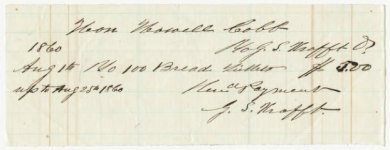 Hon Howell Cobb
1860 To G. S. Krafft Dr
Aug 1st To 100 Bread Tickets $ 5.00
up to Aug 25th 1860 Recd Payment
G. S. Krafft.